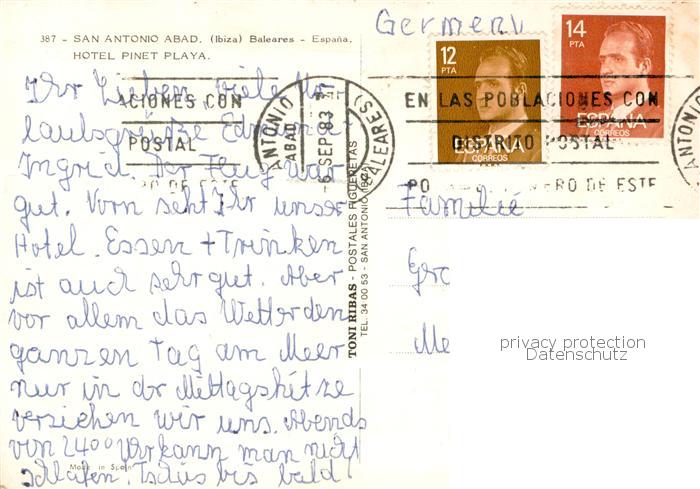 387 - SAN ANTONIO ABAD. (Ibiza) Baleares - España.
HOTEL PINET PLAYA.
Ihr Lieben viele Ur
laubsgrüße
Ingrid. Der Flug war
gut. Vorn seht Ihr unser
Hotel. Essen + Trinken
ist auch sehr gut. Aber
vor allem das Wetter den
ganzen Tag am Meer
nur in dr Mittagshitze
verziehen wir uns. Abends
von 2400 Uhr kann man nicht
schlafen! Tschüs bis bald
Made in Spain
TONI RIBAS - POSTALES FIGUERETAS
TEL. 34 00 53 - SAN ANTONIO IBIZA
Germeny
12
PTA
ESPAÑA
CORREOS
14
PTA
ESPAÑA
CORREOS
ACIONES CON
POSTAL
RO DE ESTE
ANTONIO
ABAD
6 SEP 83
(BALEARES)
EN LAS POBLACIONES CON
DISTRITO POSTAL
PO
ERO DE ESTE
ANTONI
Familie
Gro
Me
privacy protection
Datenschutz